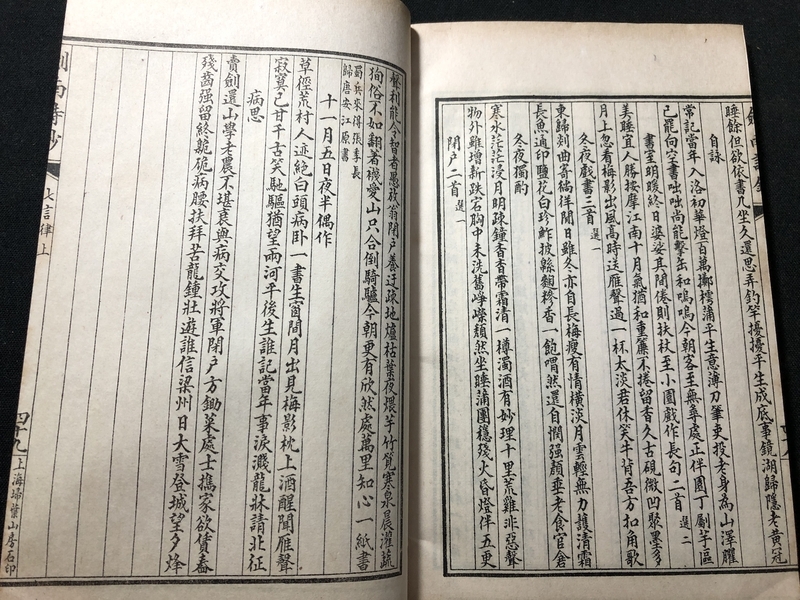 睡餘但欲依書几坐久還思弄釣竿擾擾平生成底事鏡湖歸隱老黄冠
自詠
常記當年入洛初華燈百萬擲樗蒲平生意薄刀筆吏投老身為山澤臞
己罷向空書咄咄尚能擊缶和嗚嗚今朝客至無尋處正伴園丁劚芋區
書室明暖終日婆娑其間倦則扶杖至小園戲作長句二首 選二
美睡宜人勝按摩江南十月氣猶和重簾不捲留香久古硯微凹聚墨多
月上忽看梅影出風高時送雁聲過一杯太淡君休笑牛背吾方扣角歌
冬夜戲書三首 選一
東歸剡曲寄徜徉閉日雖冬亦自長梅瘦有情橫淡月雲輕無力護清霜
長魚通印鹽花白珍鮓披緜麴糝香一飽喟然還自憫强顏垂老食官倉
冬夜獨酌
寒水茫茫浸月明疎鐘杳杳帶霜清一樽濁酒有妙理十里荒雞非惡聲
物外雖增新跌宕胸中未洗舊崢嶸頹然坐睡蒲團穩殘火昏燈伴五更
閉户二首 選一
磐利能令智者愚放翁閉户養迂疎地爐枯葉夜煨芋竹筧寒泉晨灌蔬
狥俗不如翻著襪愛山只合倒騎驢今朝更有欣然處萬里知心一紙書
蜀兵來得張季長
歸唐安江原書
十一月五日夜半偶作
草徑荒村人迹絶白頭病卧一書生窗間月出見梅影枕上酒醒聞雁聲
寂寞已甘千古笑馳驅猶望兩河平後生誰記當年事淚濺龍牀請北征
病思
賣劍還山學老農不堪衰與病交攻將軍閉户方鋤菜處士攜家欲賃舂
殘齒强留終龙硊病腰扶拜苦龍鍾壯遊誰信梁州日大雪登城望夕烽
劍南詩鈔
七言律上
四十九
上海埽葉山房石印